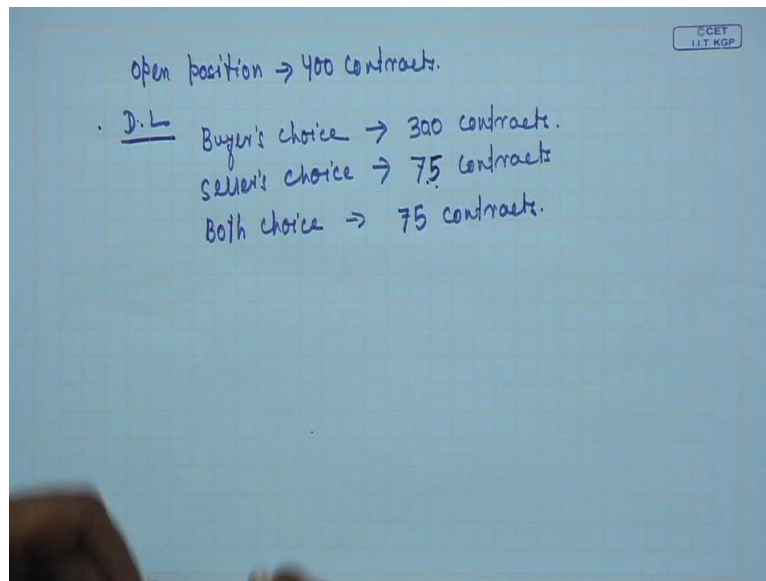 ©CET
I.I.T. KGP
Open position → 400 contracts.
. D.L
Buyer's choice → 300 contracts.
Seller's choice → 75 contracts
Both choice → 75 contracts.